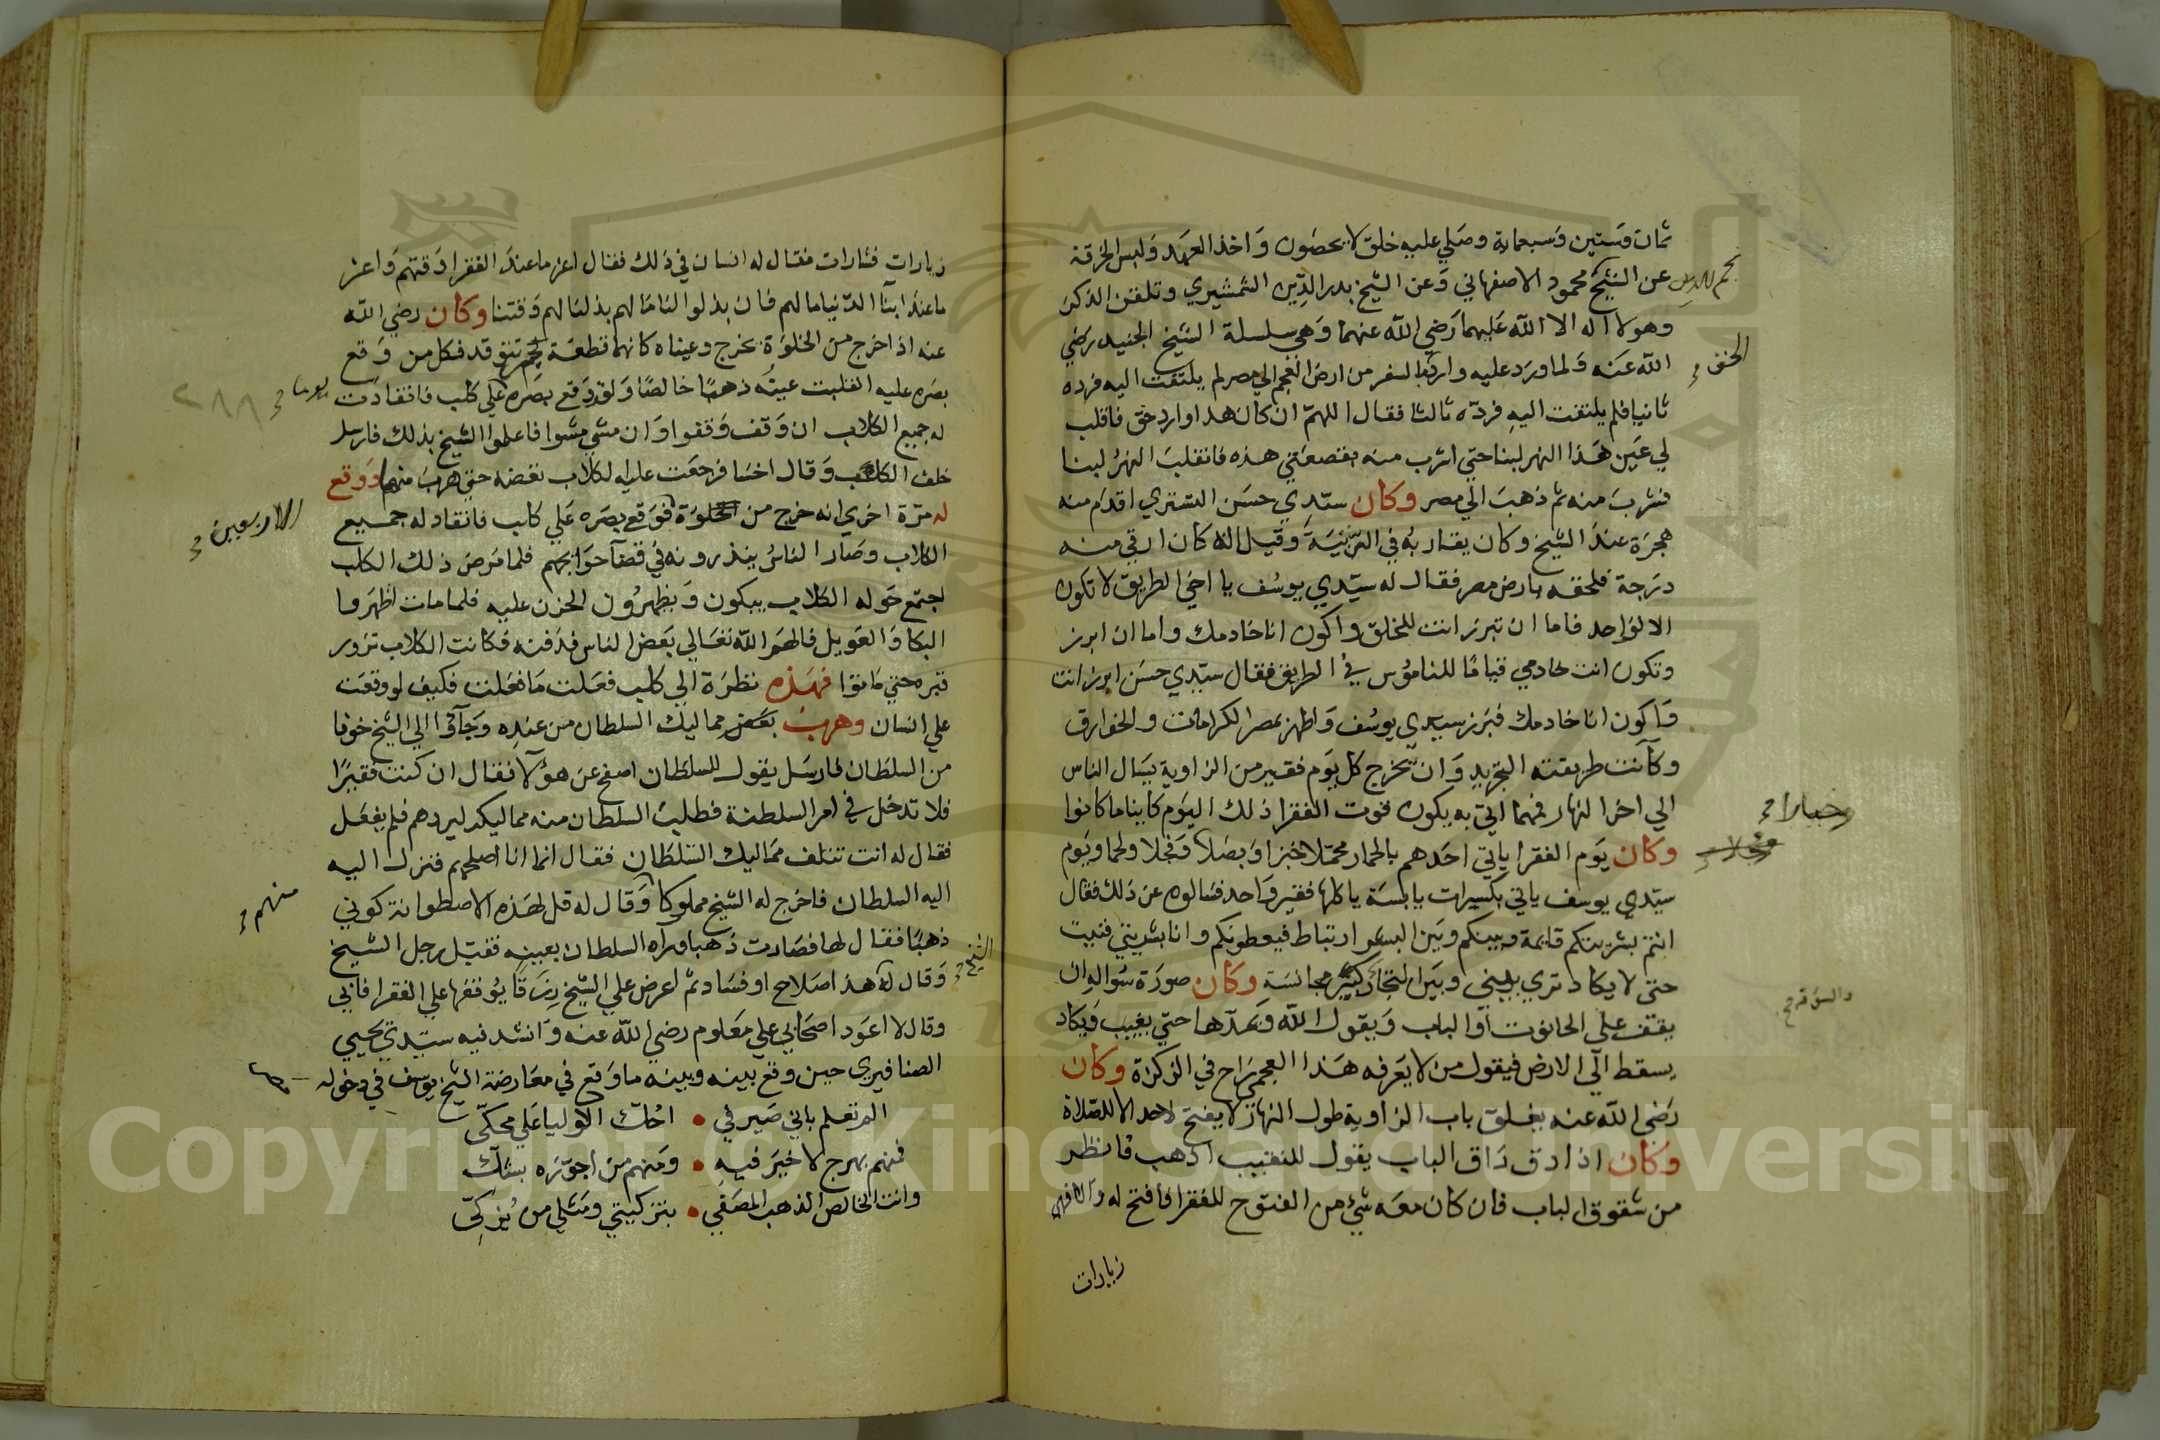 ثمان وستين وسبعماية وصلي عليه خلق لا يحصون واخذ العهد ولبس الخرقة
نجم الدين
عن الشيخ محمود الاصفهاني وعن الشيخ بدر الدين الشمشيري وتلقن الذكر
وهو لا اله الا الله عليهما رضي الله عنهما وهي سلسلة الشيخ الجنيد رضي
الله عنه ولما ورد عليه وارد السفر من ارض العجم الي مصر لم يلتفت اليه فرده
الحق
ثانيا فلم يلتفت اليه فرده ثالثا فقال اللهم ان كان هذا وارد حق فاقلب
لي عين هذا النهر لبنا حتي اشرب منه بقصعتي هذه فانقلب النهر لبنا
فشرب منه ثم ذهب الي مصر وكان سيدي حسن التستري اقدم منه
هجرة عند الشيخ وكان يقاربه في الرتبة وقيل انه كان ارقي منه
درجة فلحقه بارض مصر فقال له سيدي يوسف يا اخي الطريق لا تكون
الا لواحد فاما ان تبرز انت للخلق واكون انا خادمك واما ان ابرز
وتكون انت خادمي قياما للناموس في الطريق فقال سيدي حسن ابرز انت
واكون انا خادمك فبرز سيدي يوسف واظهر بمصر الكرامات والخوارق
وكانت طريقته التجريد وان يخرج كل يوم فقير من الزاوية يسال الناس
الي اخر النهار فمهما اتي به يكون قوت الفقرا ذلك اليوم كاينا ما كانوا
وكان يوم الفقرا ياتي احدهم بالحمار محملا خبزا وبصلا وفجلا ولحما ويوم
وخيارا
سيدي يوسف ياتي بكسيرات يابسة ياكلها فقير واحد فسالوه عن ذلك فقال
انتم بشريتكم قايمة وبينكم وبين البشر ارتباط فيعطونكم وانا بشريتي فنيت
حتي لا يكاد تري بيني وبين التجار كبير مجانسة وكان صورة سواله ان
يقف علي الحانوت او الباب ويقول الله ويمدها حتي يغيب ويكاد
يسقط الي الارض فيقول من لا يعرفه هذا العجمي راح في الزكزة وكان
رضي الله عنه يغلق باب الزاوية طول النهار لا يفتح لاحد الا للصلاة
وكان اذا دق داق الباب يقول للنقيب اذهب فانظر
من شقوق الباب فان كان معه شي من الفتوح للفقرا فافتح له والا فهي
زيارات
زيارات فشارات فقال له انسان في ذلك فقال اعز ما عند الفقرا وقتهم واعز
ما عند ابنا الدنيا مالهم فان بذلوا لنا مالهم بذلنا لهم وقتنا وكان رضي الله
عنه اذا خرج من الخلوة يخرج وعيناه كانهما قطعة جمر تتوقد فكل من وقع
بصره عليه انقلبت عينه ذهبا خالصا ولقد وقع بصره علي كلب فانقادت
يوما
٢٨٨
له جميع الكلاب ان وقف وقفوا وان مشي مشوا فاعلموا الشيخ بذلك فارسل
خلف الكلب وقال اخسا فرجعت عليه الكلاب تعضه حتي هرب منهم ووقع
له مرة اخري انه خرج من خلوة فوقع بصره علي كلب فانقاد له جميع
الاربعين
الكلاب وصار الناس ينذرونه في قضا حوايجهم فلما مرض ذلك الكلب
اجتمع حوله الكلاب يبكون ويظهرون الحزن عليه فلما مات اظهروا
البكا والعويل فالهم الله تعالي بعض الناس فدفنه فكانت الكلاب تزور
قبره حتي ماتوا فهذه نظرة الي كلب فعلت ما فعلت فكيف لو وقعت
علي انسان وهرب بعض مماليك السلطان من عنده وجاوا الي الشيخ خوفا
من السلطان فارسل يقول للسلطان اصفح عن هؤلا فقال ان كنت فقيرا
فلا تدخل في امر السلطنة فطلب السلطان منه مماليكه ليردهم فلم يفعل
فقال له انت تتلف مماليك السلطان فقال انما انا اصلحهم فنزل اليه
اليه السلطان فاخرج له الشيخ مملوكا وقال له قل لهذه الاسطوانة كوني
منهم
ذهبا فقال لها فصارت ذهبا وراه السلطان بعينه فقبل رجل الشيخ
الشيخ
وقال له هذا صلاح او فساد ثم اعرض علي الشيخ رزقا يوقفها علي الفقرا فابي
وقال لا اعود اصحابي علي معلوم رضي الله عنه وانشد فيه سيدي يحيي
الصنافيري حين وقع بينه وبينه ما وقع في معارضة الشيخ يوسف في دخوله
الم تعلم باني صيرفي • احك الاوليا علي محكي
فمنهم بهرج لا خير فيه • ومنهم من اجوزه بشك
وانت الخالص الذهب المصفي • بتزكيتي ومثلي من يزكي
Copyright © King Saud University